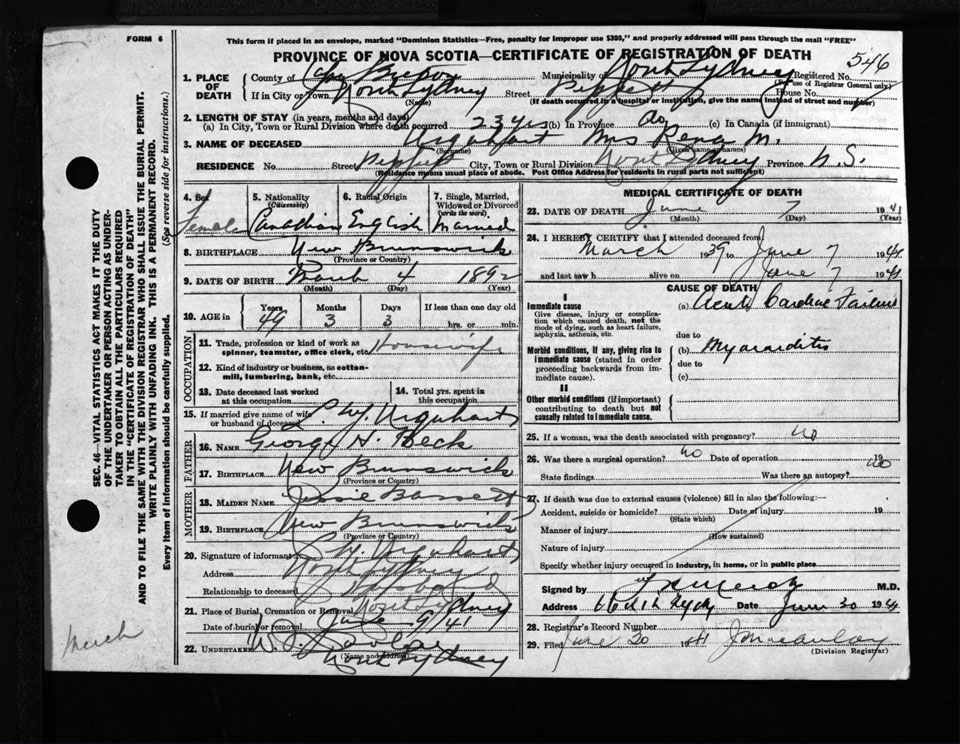 FORM 6
This form if placed in an envelope, marked "Dominion Statistics—Free, penalty for improper use $300," and properly addressed will pass through the mail "FREE"
PROVINCE OF NOVA SCOTIA—CERTIFICATE OF REGISTRATION OF DEATH
546
1. PLACE OF DEATH County of Cape Breton Municipality of North Sydney Registered No. (For use of Registrar General only)
If in City or Town North Sydney (Name) Street Peppett House No.
(If death occurred in a hospital or institution, give the name instead of street and number)
2. LENGTH OF STAY (in years, months and days)
(a) In City, Town or Rural Division where death occurred 23 yrs (b) In Province do (c) In Canada (if immigrant)
3. NAME OF DECEASED Urquhart (Surname) Mrs Rena M. (Given names)
RESIDENCE No. Street Peppett City, Town or Rural Division North Sydney Province N.S.
(Residence means usual place of abode. Post Office Address for residents in rural parts not sufficient)
4. Sex Female
5. Nationality (Citizenship) Canadian
6. Racial Origin English
7. Single, Married, Widowed or Divorced (write the word) Married
8. BIRTHPLACE New Brunswick
(Province or Country)
9. DATE OF BIRTH March 4 1892
(Month) (Day) (Year)
10. AGE in Years 49 Months 3 Days 3 If less than one day old hrs. or min.
OCCUPATION
11. Trade, profession or kind of work as spinner, teamster, office clerk, etc. Housewife
12. Kind of industry or business, as cotton-mill, lumbering, bank, etc.
13. Date deceased last worked at this occupation
14. Total yrs. spent in this occupation
15. If married give name of wife or husband of deceased Urquhart
FATHER
16. NAME George H. Beck
17. BIRTHPLACE New Brunswick
(Province or Country)
MOTHER
18. MAIDEN NAME Jessie Bassett
19. BIRTHPLACE New Brunswick
(Province or Country)
20. Signature of informant Urquhart
Address North Sydney
Relationship to deceased Husband
21. Place of Burial, Cremation or Removal North Sydney
Date of burial or removal June 9/41
22. UNDERTAKER W.
(Name and address) North Sydney
MEDICAL CERTIFICATE OF DEATH
23. DATE OF DEATH June 7 1941
(Month) (Day) (Year)
24. I HEREBY CERTIFY that I attended deceased from
March 1939 to June 7 1941
and last saw h alive on June 7 1941
CAUSE OF DEATH
I
Immediate cause
Give disease, injury or complication which caused death, not the mode of dying, such as heart failure, asphyxia, asthenia, etc.
(a) Acute Cardiac Failure
due to
Morbid conditions, if any, giving rise to immediate cause (stated in order proceeding backwards from immediate cause).
(b) Myocarditis
due to
(c)
II
Other morbid conditions (if important) contributing to death but not causally related to immediate cause.
25. If a woman, was the death associated with pregnancy? no
26. Was there a surgical operation? no Date of operation 19
State findings Was there an autopsy? no
27. If death was due to external causes (violence) fill in also the following:—
Accident, suicide or homicide? Date of injury 19
(State which)
Manner of injury
(How sustained)
Nature of injury
Specify whether injury occurred in industry, in home, or in public place
Signed by M.D.
Address Date June 30 1941
28. Registrar's Record Number
29. Filed June 30 1941
(Division Registrar)
SEC. 46—VITAL STATISTICS ACT MAKES IT THE DUTY
OF THE UNDERTAKER OR PERSON ACTING AS UNDER-
TAKER TO OBTAIN ALL THE PARTICULARS REQUIRED
IN THE "CERTIFICATE OF REGISTRATION OF DEATH"
AND TO FILE THE SAME WITH THE DIVISION REGISTRAR WHO SHALL ISSUE THE BURIAL PERMIT.
WRITE PLAINLY WITH UNFADING INK. THIS IS A PERMANENT RECORD.
Every item of information should be carefully supplied. (See reverse side for instructions.)